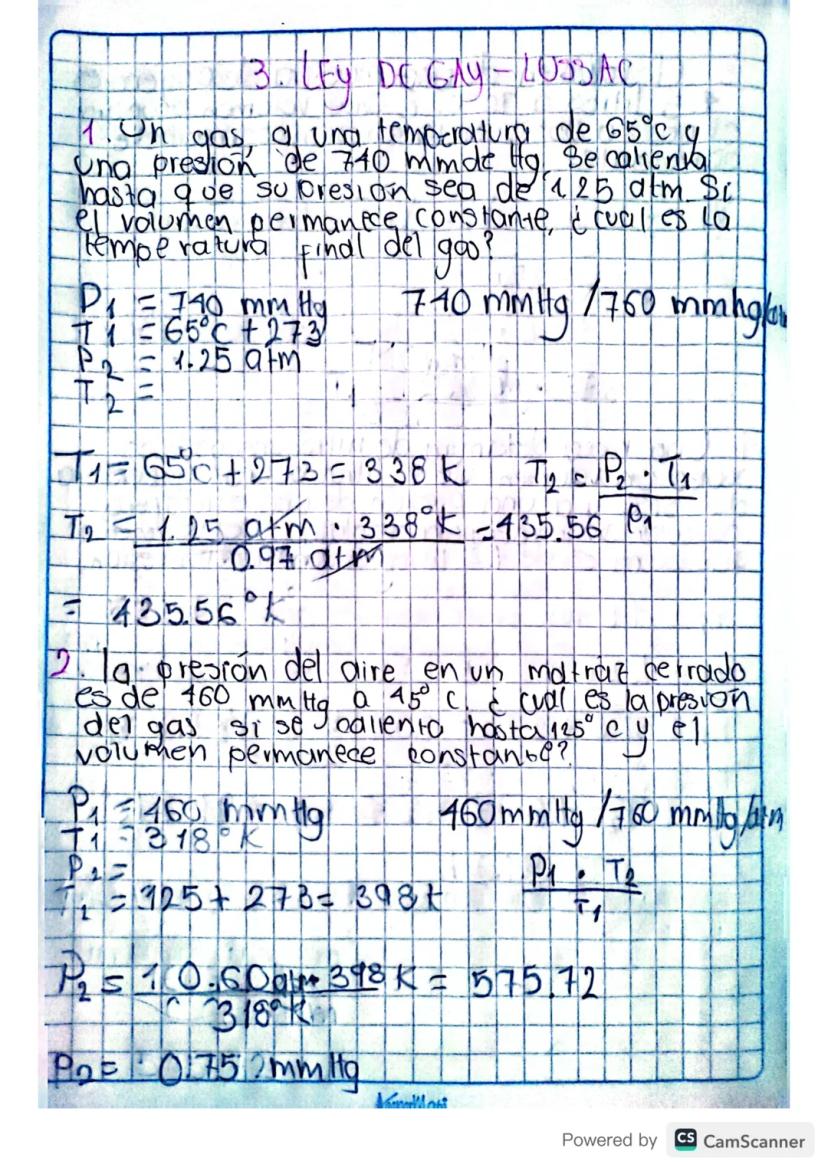 3. LEY DE GAY-LUSSAC
1. Un gas, a una temperatura de 65°c y
una presión de 740 mmde Hg, Se calienta
hasta que su presión sea de 1.25 atm. Si
el volumen permanece constante, ¿cual es la
temperatura final del gas?
P1 = 740 mmHg 740 mmHg /760 mmhg/atm
T1 = 65°c + 273
P2 = 1.25 atm
T2 =
T1 = 65°c + 273 = 338 k T2 = P2 · T1
P1
T2 = 1.25 atm · 338°k = 435.56
0.97 atm
= 435.56°k
2. la presión del aire en un matraz cerrado
es de 460 mmHg a 45° c. ¿ cual es la presion
del gas si se calienta hasta 125° c y el
volumen permanece constante?
P1 = 460 mmHg 460mmHg /760 mmHg/atm
T1 = 318°K
P2 =
T2 = 125 + 273 = 398 k
P1 · T2
T1
P2 = 0.60atm 398 K = 575.72
318°K
P2 = 0.75 mmHg
Powered by CS CamScanner